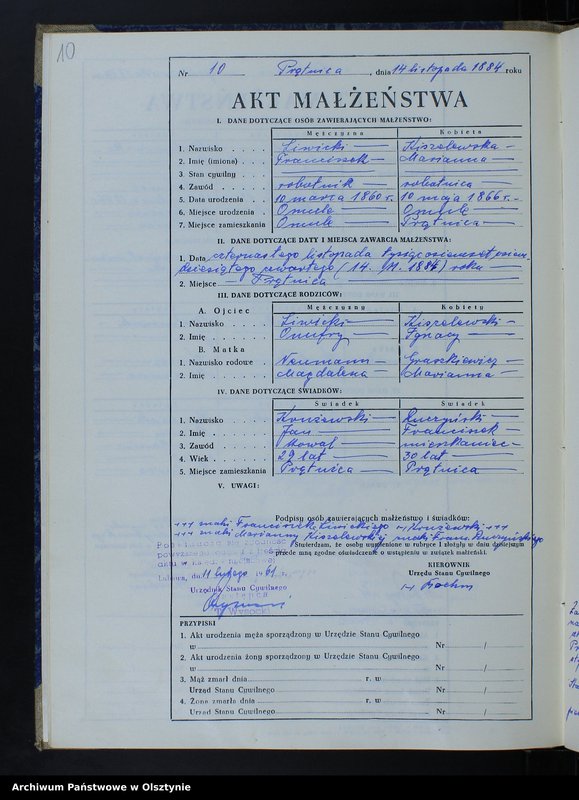 10
Nr 10 Prątnica, dnia 14 listopada 1884 roku
AKT MAŁŻEŃSTWA
I. DANE DOTYCZĄCE OSÓB ZAWIERAJĄCYCH MAŁŻEŃSTWO:
Mężczyzna Kobieta
1. Nazwisko Liwicki Kiszelewska
2. Imię (imiona) Franciszek Marianna
3. Stan cywilny
4. Zawód robotnik robotnica
5. Data urodzenia 10 marca 1860 r. 10 maja 1866 r.
6. Miejsce urodzenia Omule Omule
7. Miejsce zamieszkania Omule Prątnica
II. DANE DOTYCZĄCE DATY I MIEJSCA ZAWARCIA MAŁŻEŃSTWA:
1. Data czternastego listopada tysiąc osiemset osiem
dziesiątego czwartego (14. 11. 1884) roku
2. Miejsce Prątnica
III. DANE DOTYCZĄCE RODZICÓW:
Mężczyzny Kobiety
A. Ojciec
1. Nazwisko Liwicki Kiszelewski
2. Imię Onufry Ignacy
B. Matka
1. Nazwisko rodowe Neumann Graszkiewicz
2. Imię Magdalena Marianna
IV. DANE DOTYCZĄCE ŚWIADKÓW:
Świadek Świadek
1. Nazwisko Konżewski Ruczyński
2. Imię Jan Franciszek
3. Zawód Kowal mieszkaniec
4. Wiek 29 lat 30 lat
5. Miejsce zamieszkania Prątnica Prątnica
V. UWAGI:
Podpisy osób zawierających małżeństwo i świadków:
+++ znaki Franciszka Liwickiego Konżewski +++
+++ znaki Marianny Kiszelewskiej znaki Franc. Ruczyńskiego
Stwierdzam, że osoby wymienione w rubryce I złożyły w dniu dzisiejszym
przede mną zgodne oświadczenie o wstąpieniu w związek małżeński.
KIEROWNIK
Urzędu Stanu Cywilnego
Lubawa, dnia 11 lutego 1961 r.
Urzędnik Stanu Cywilnego
T. Wysocki
PRZYPISKI
1. Akt urodzenia męża sporządzony w Urzędzie Stanu Cywilnego
w Nr /
2. Akt urodzenia żony sporządzony w Urzędzie Stanu Cywilnego
w Nr /
3. Mąż zmarł dnia r. w
Urząd Stanu Cywilnego Nr /
4. Żona zmarła dnia r. w
Urząd Stanu Cywilnego Nr /
Archiwum Państwowe w Olsztynie